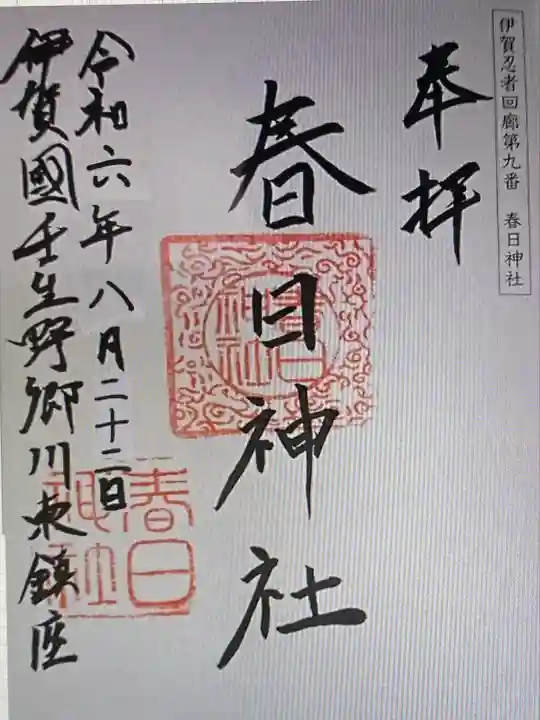 伊賀忍者回廊第九番 春日神社
奉拝
春日神社
春日神社
令和六年八月二十二日
春日神社
伊賀國壬生野郷川東鎮座